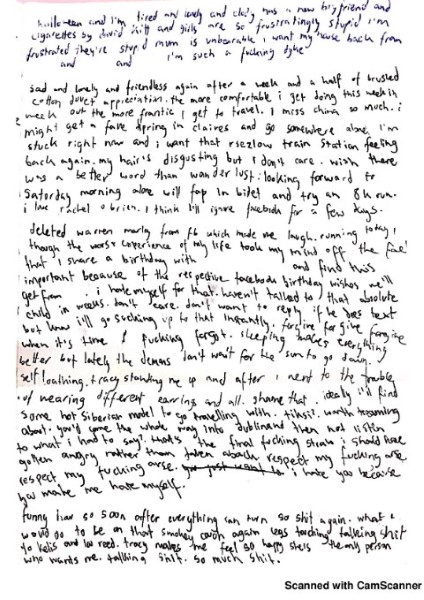 halloween and I'm tired and lonely and clady has a new boyfriend and
cigarettes by david and girls are so frustratingly stupid I'm
frustrated they're stupid mum is unbearable I want my house back from
and and I'm such a fucking dyke
sad and lonely and friendless again after a week and a half of brushed
cotton duvet appreciation. the more comfortable i get doing this week in
week out the more frantic I get to travel. I miss china so much. i
might get a fake in claires and go somewhere alone. I'm
stuck right now and i want that train station feeling
back again. my hair's disgusting but I don't care. wish there
was a better word than wanderlust. looking forward to
Saturday morning alone will fap in bed and try an 8k run.
i love rachel o brien. I think I'll ignore facebook for a few days.
deleted warren from fb which made me laugh. running today,
though the worst experience of my life took my mind off the fact
that I share a birthday with and find this
important because of the respective facebook birthday wishes we'll
get from . i hate myself for that. haven't talked to that absolute
child in weeks. don't care. don't want to reply if he does text
but know i'll go sucking up to that instantly. forgive forgive forgive
when it's time I fucking forgot. sleeping makes everything
better but lately the demons don't wait for the sun to go down.
self loathing. tracy standing me up and after i went to the trouble
of wearing different earring and all. shame that. ideally i'd find
some hot siberian model to go travelling with. worth
about. you'd come the whole way into dublin and then not listen
to what i had to say? that's the final fucking straw i should have
gotten angry rather than taken aback. respect my fucking arse
respect my fucking arse. you just want to i hate you because
you make me hate myself.
funny how so soon after everything can turn so shit again. what i
would do to be on that smokey couch again legs touching talking shit
to kelis and lou reed. tracy makes me feel so happy she's the only person
who wants me. talking shit. so much shit.
Scanned with CamScanner